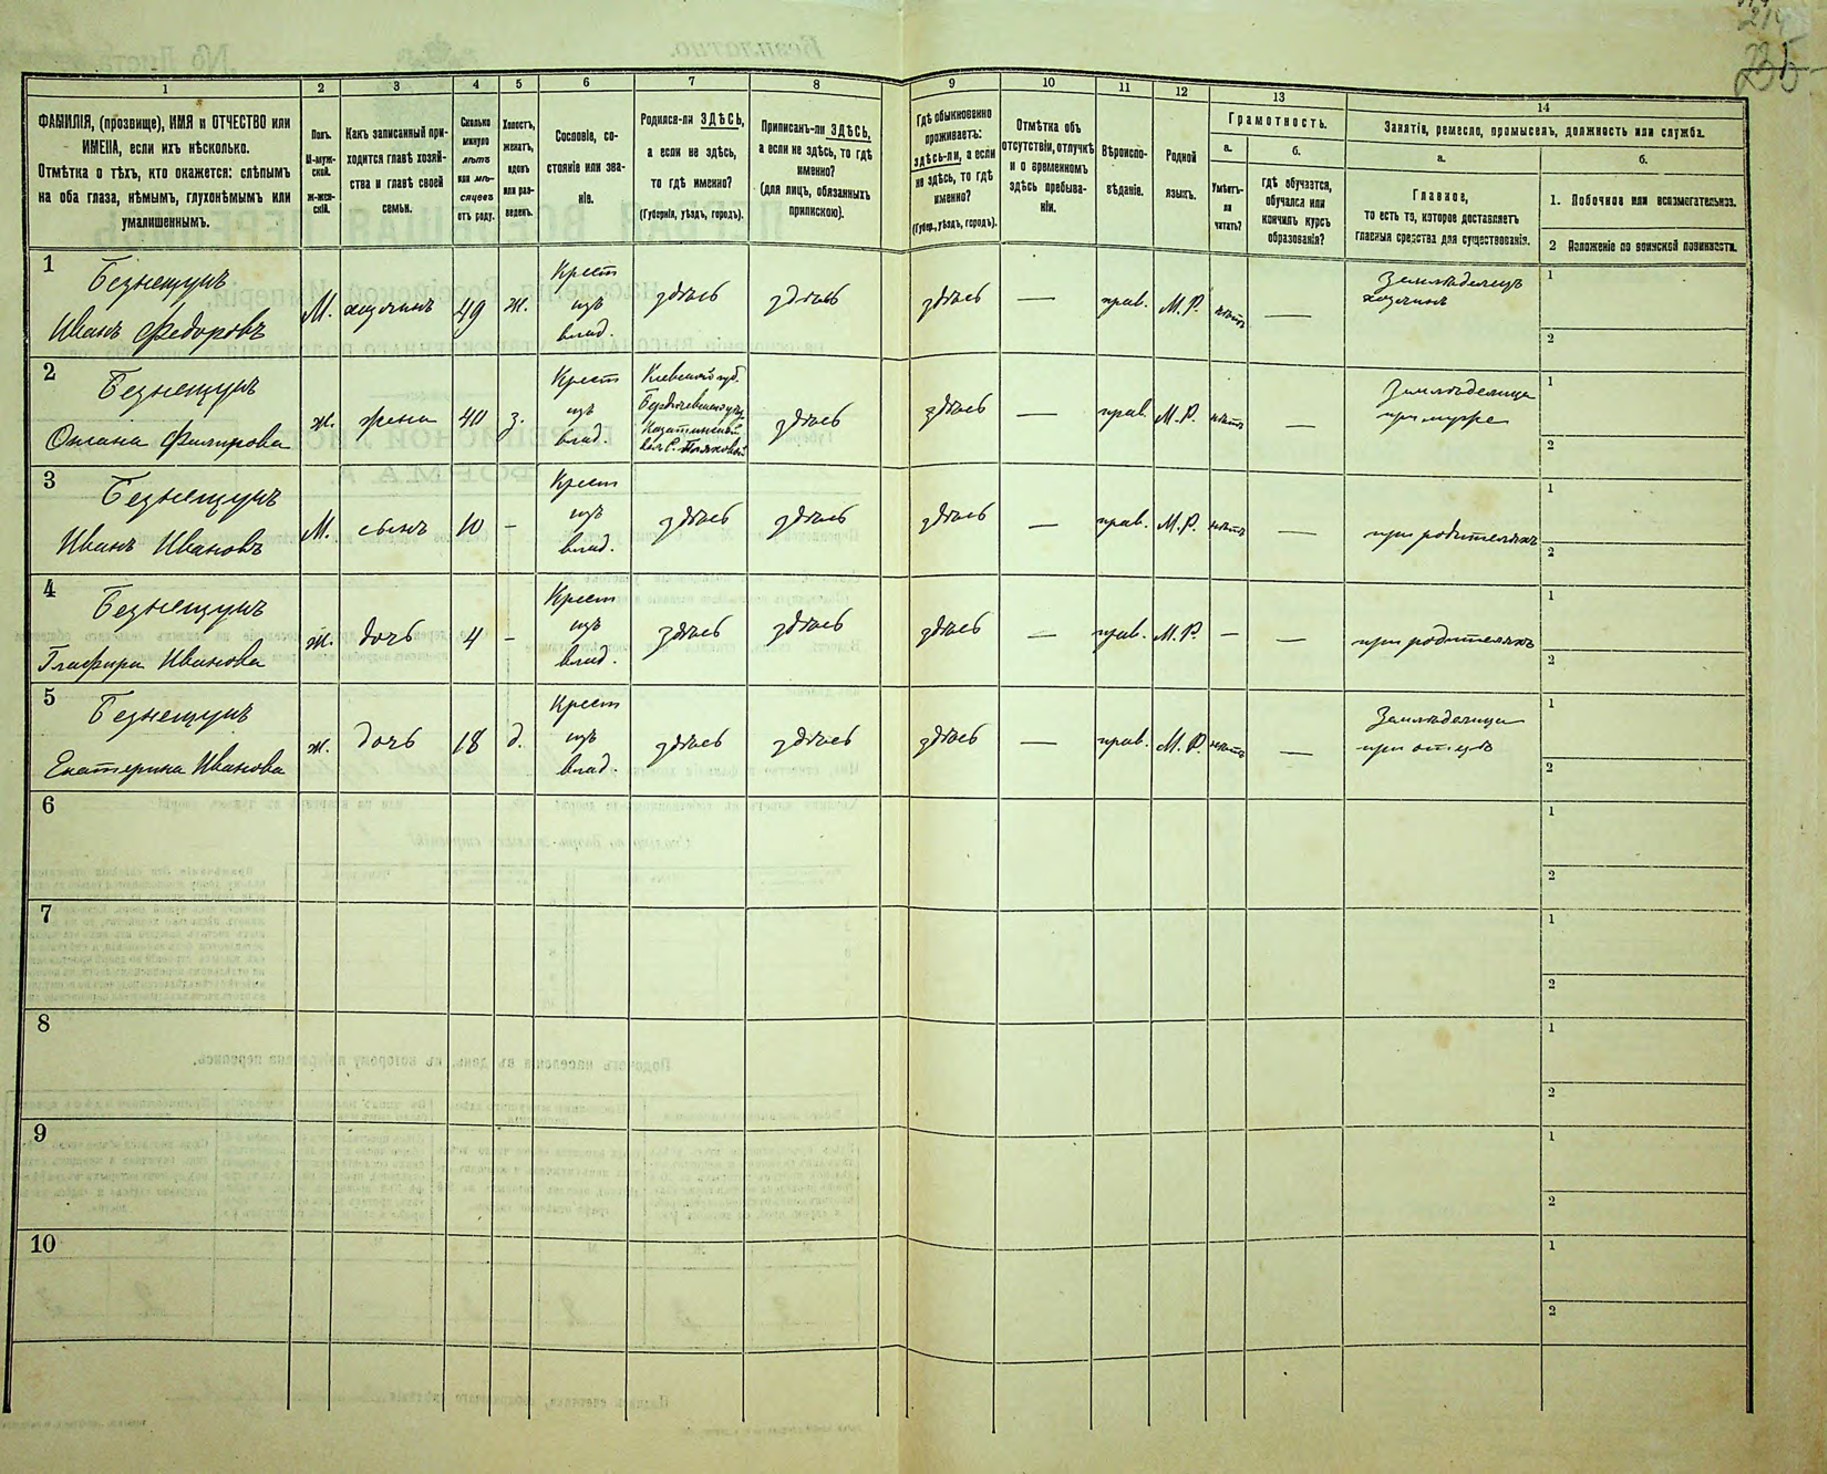 235
1
2
3
4
5
6
7
8
9
10
11
12
13
14
ФАМИЛІЯ, (прозвище), ИМЯ и ОТЧЕСТВО или
ИМЕНА, если ихъ нѣсколько.
Отмѣтка о тѣхъ, кто окажется: слѣпымъ
на оба глаза, нѣмымъ, глухонѣмымъ или
умалишеннымъ.
Полъ.
М-муж-
ской.
Ж-жен-
скій.
Какъ записанный при-
ходится главѣ хозяй-
ства и главѣ своей
семьи.
Сколько
минуло
лѣтъ
или мѣ-
сяцевъ
отъ роду.
Холостъ,
женатъ,
вдовъ
или раз-
веденъ.
Сословіе, со-
стояніе или зва-
ніе.
Родился-ли ЗДѢСЬ,
а если не здѣсь,
то гдѣ именно?
(Губернія, уѣздъ, городъ).
Приписанъ-ли ЗДѢСЬ,
а если не здѣсь, то гдѣ
именно?
(для лицъ, обязанныхъ
припискою).
Гдѣ обыкновенно
проживаетъ:
здѣсь-ли, а если
не здѣсь, то гдѣ
именно?
(Губер., уѣздъ, городъ).
Отмѣтка объ
отсутствіи, отлучкѣ
и о временномъ
здѣсь пребыва-
ніи.
Вѣроиспо-
вѣданіе.
Родной
языкъ.
Грамотность.
а.
б.
Умѣетъ-
ли
читать?
гдѣ обучается,
обучался или
кончилъ курсъ
образованія?
Занятіе, ремесло, промыселъ, должность или служба.
а.
б.
Главное,
то есть то, которое доставляетъ
главныя средства для существованія.
1. Побочное или вспомогательное.
2 Положеніе по воинской повинности.
1
Безнещунъ
Иванъ Федоровъ
М. хозяинъ 49 ж.
Крест
изъ
влад.
здѣсь здѣсь здѣсь — прав. М.Р. нѣтъ —
Земледѣлецъ
хозяинъ
1
2
2
Безнещунъ
Оксана Филипова
ж. жена 40 з.
Крест
изъ
влад.
Кіевской губ.
Бердичевскаго уѣз.
Казатинской
вол. С.
здѣсь здѣсь — прав. М.Р. нѣтъ —
Земледѣлица
при мужѣ
1
2
3
Безнещунъ
Иванъ Ивановъ
М. сынъ 10 -
Крест
изъ
влад.
здѣсь здѣсь здѣсь — прав. М.Р. нѣтъ —
при родителяхъ
1
2
4
Безнещунъ
Глафира Иванова
ж. дочь 4 -
Крест
изъ
влад.
здѣсь здѣсь здѣсь — прав. М.Р. — —
при родителяхъ
1
2
5
Безнещунъ
Екатерина Иванова
ж. дочь 18 д.
Крест
изъ
влад.
здѣсь здѣсь здѣсь — прав. М.Р. нѣтъ —
Земледѣлица
при отцѣ
1
2
6
1
2
7
1
2
8
1
2
9
1
2
10
1
2